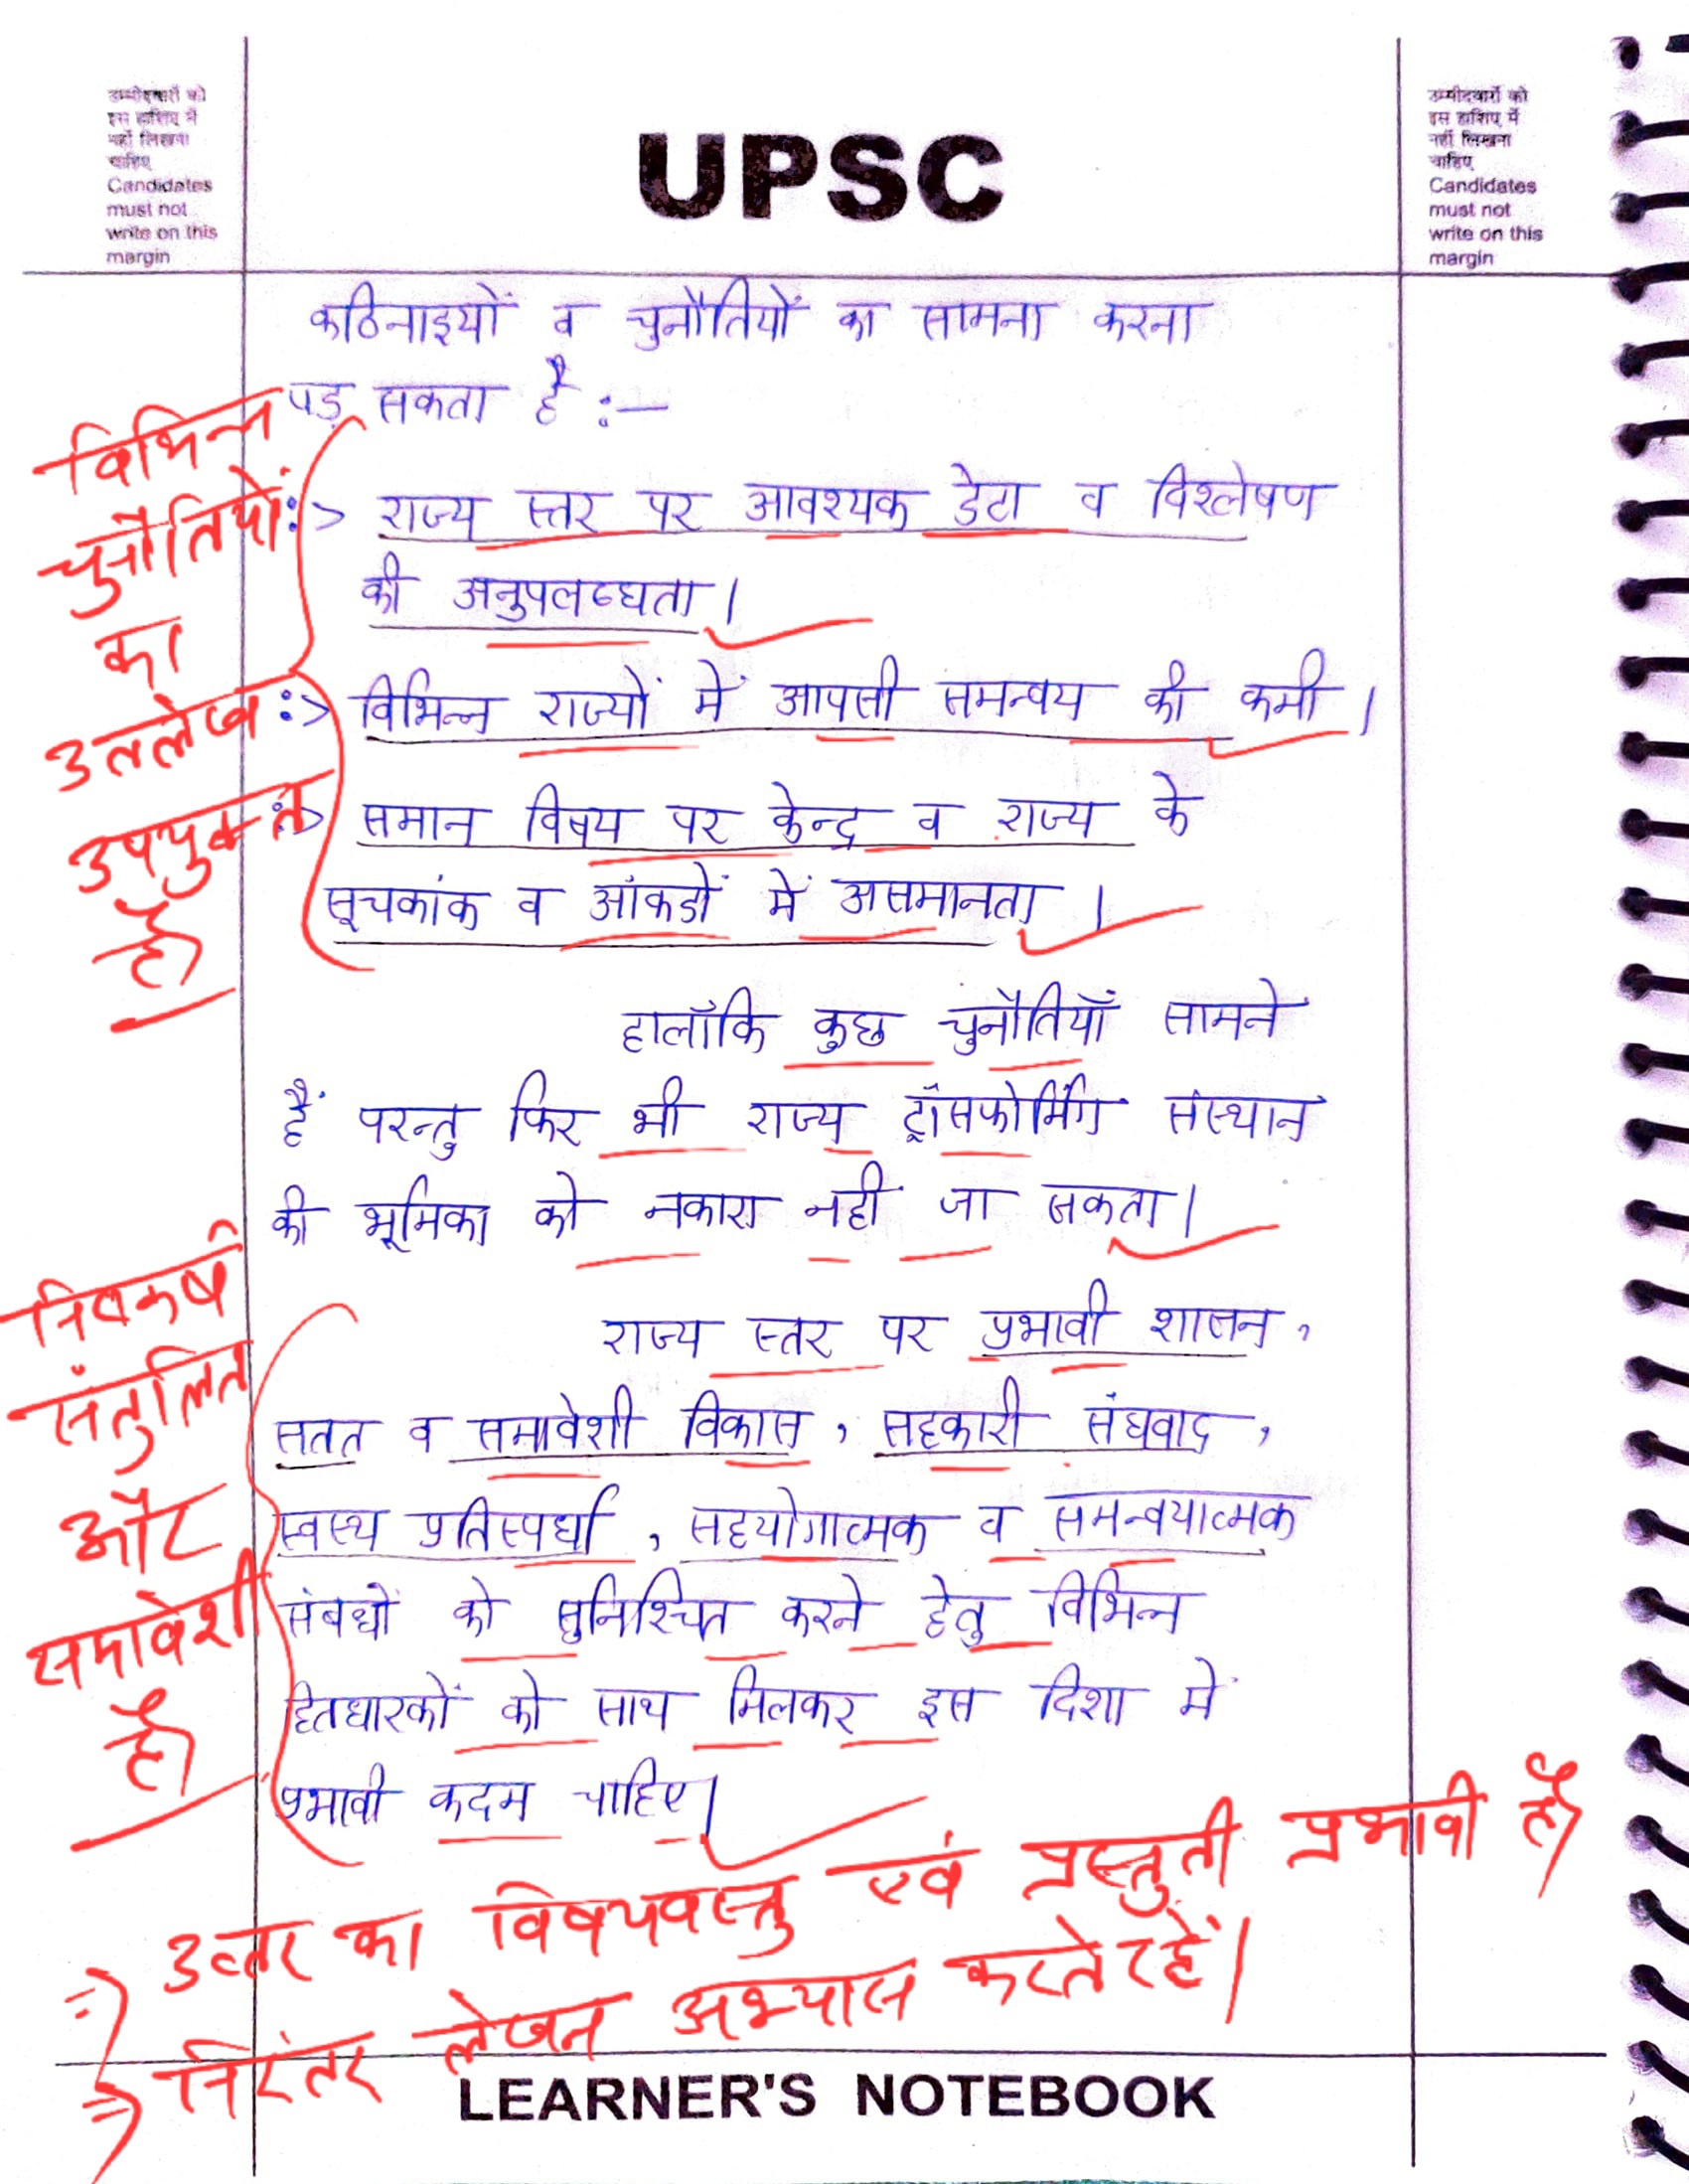 उम्मीदवारों को
इस हाशिए में
नहीं लिखना
चाहिए
Candidates
must not
write on this
margin
UPSC
उम्मीदवारों को
इस हाशिए में
नहीं लिखना
चाहिए
Candidates
must not
write on this
margin
कठिनाइयों व चुनौतियों का सामना करना
पड़ सकता है :—
विभिन्न
चुनौतियों
का
उल्लेख
उपयुक्त
है
:> राज्य स्तर पर आवश्यक डेटा व विश्लेषण
की अनुपलब्धता।
:> विभिन्न राज्यों में आपसी समन्वय की कमी।
:> समान विषय पर केन्द्र व राज्य के
सूचकांक व आंकडों में असमानता।
हालाँकि कुछ चुनौतियाँ सामने
हैं परन्तु फिर भी राज्य ट्राँसफोर्मिंग संस्थान
की भूमिका को नकारा नही जा सकता।
निष्कर्ष
संतुलित
और
समावेशी
है
राज्य स्तर पर प्रभावी शासन,
सतत व समावेशी विकास, सहकारी संघवाद,
स्वस्थ प्रतिस्पर्धा, सहयोगात्मक व समन्वयात्मक
संबधों को सुनिश्चित करने हेतु विभिन्न
हितधारकों को साथ मिलकर इस दिशा में
प्रभावी कदम चाहिए।
=> उत्तर का विषयवस्तु एवं प्रस्तुती प्रभावी है
=> निरंतर लेखन अभ्यास करते रहें।
LEARNER'S NOTEBOOK